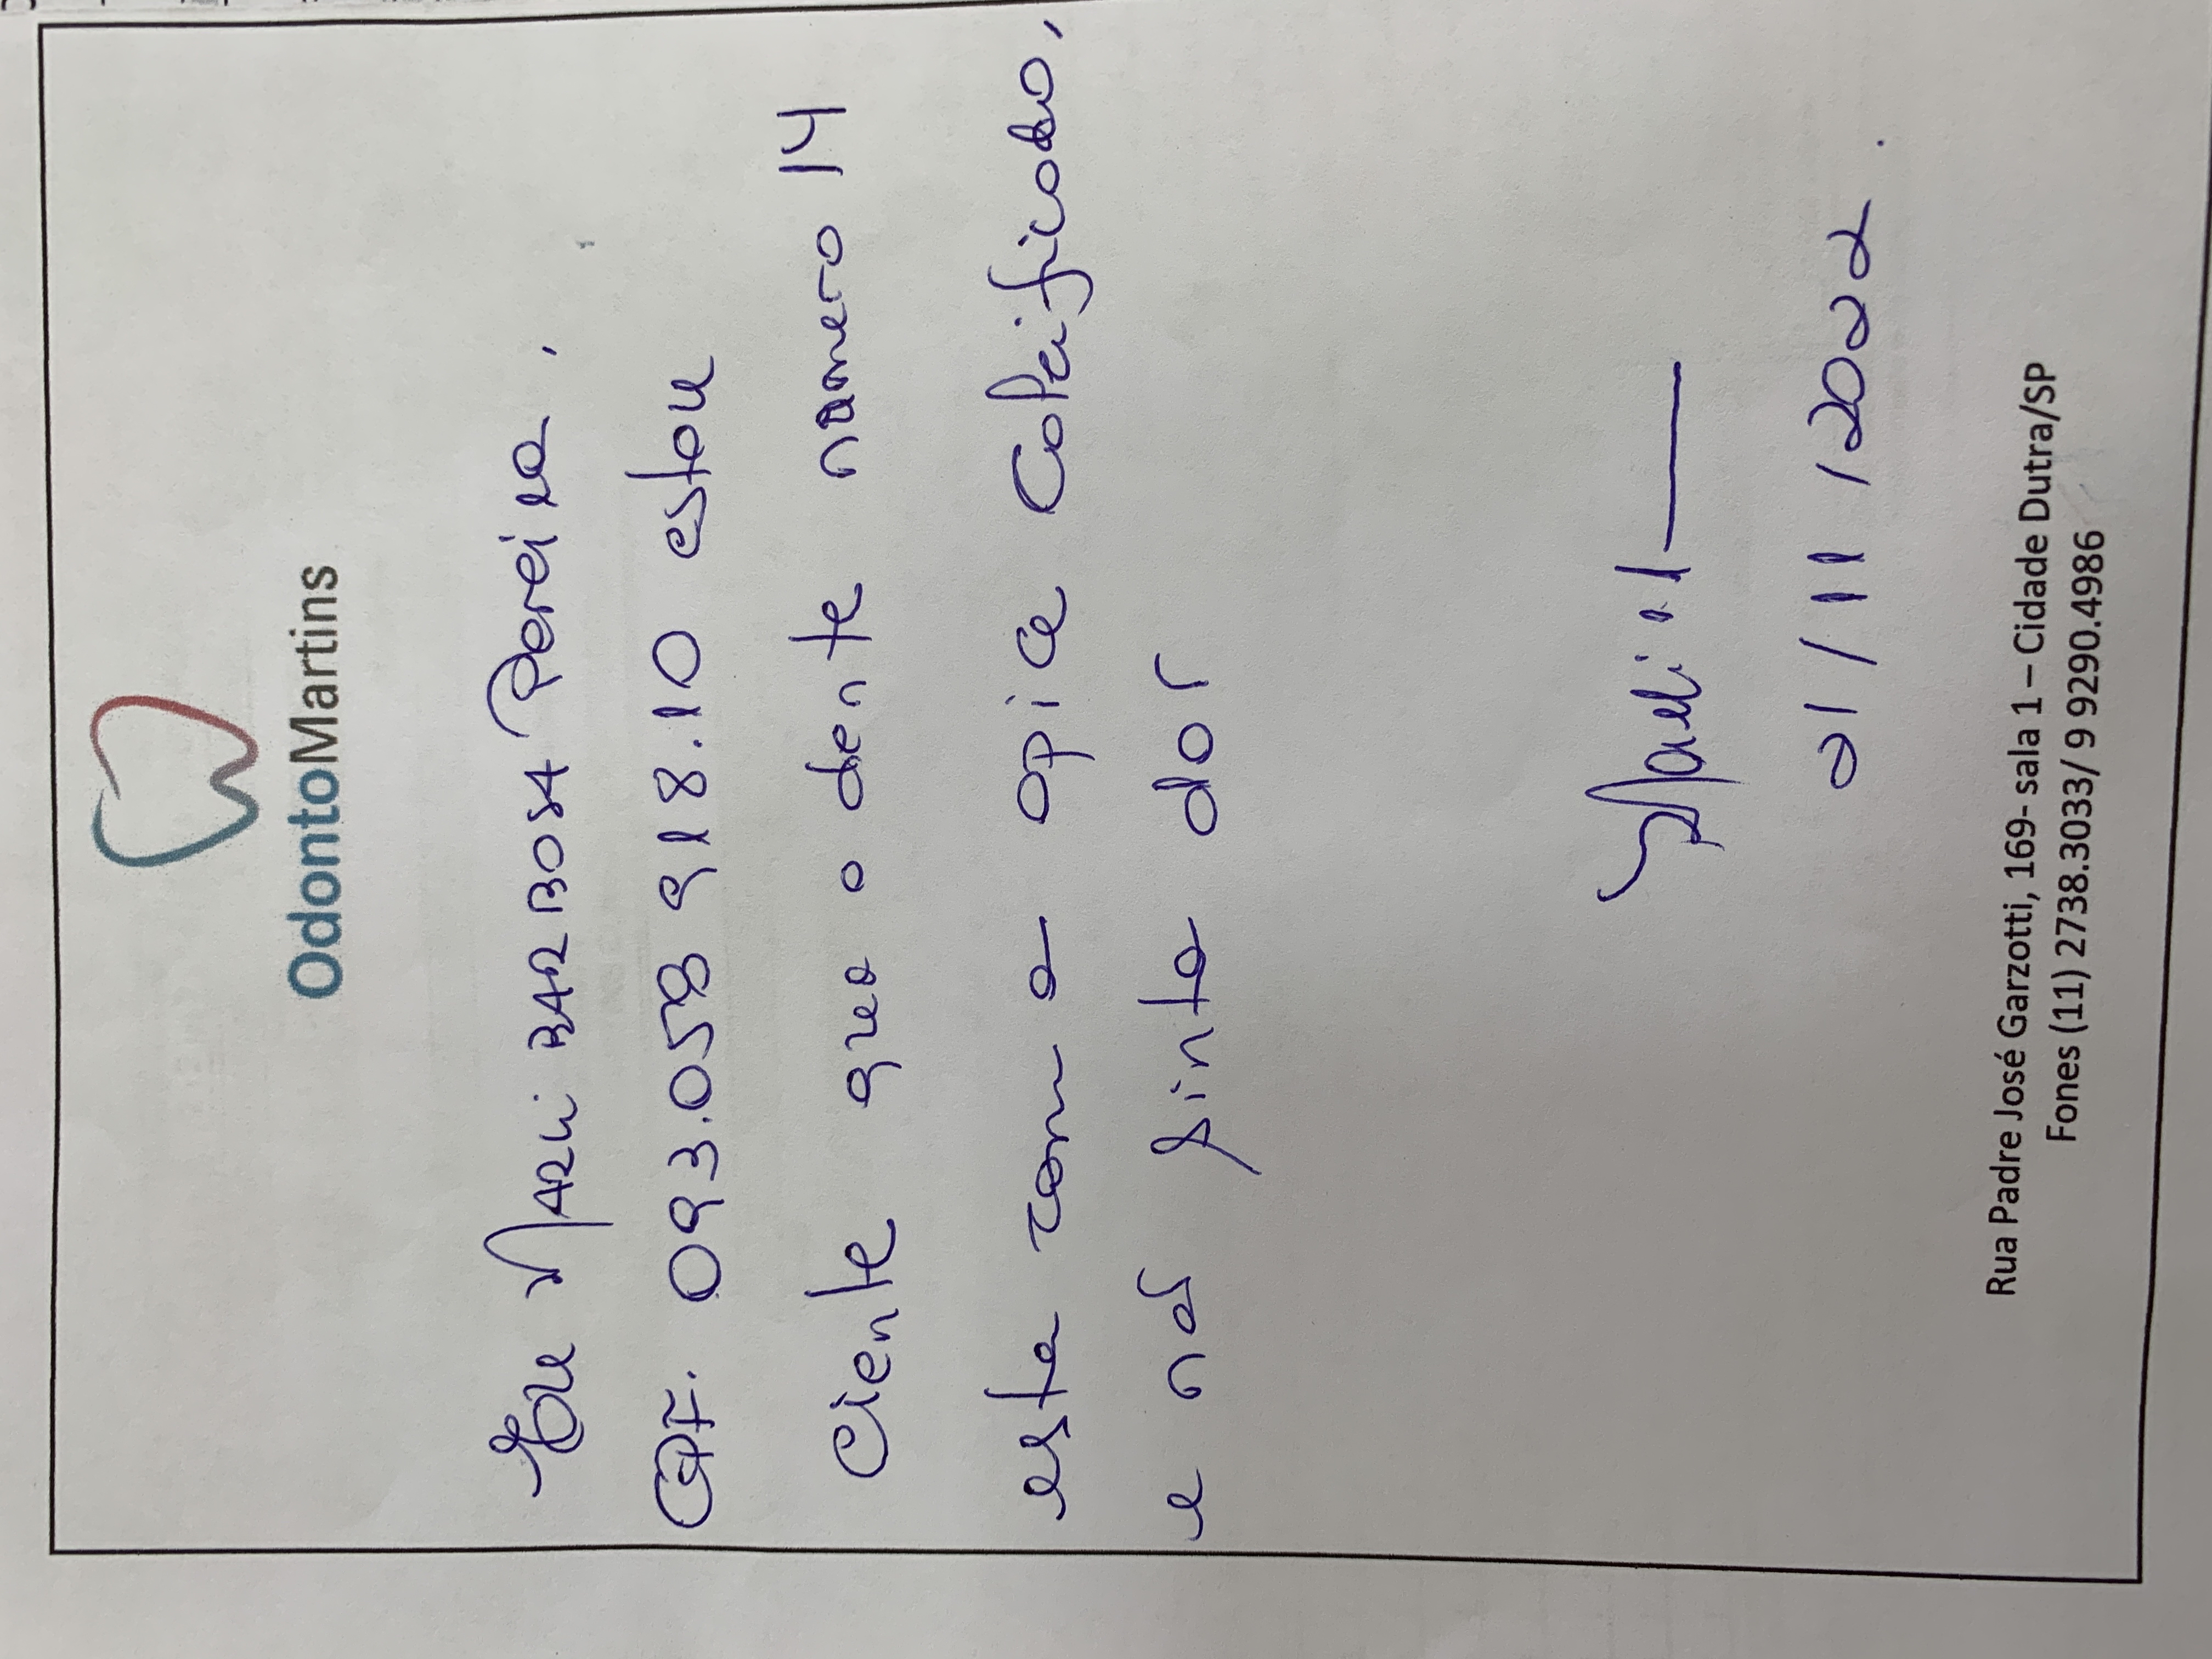 OdontoMartins
Eu Marli BARBOSA Pereira,
CPF. 093.058 918.10 estou
Ciente que o dente número 14
esta com o opice Calcificado,
e não sinto dor
Marli
01/11/2022.
Rua Padre José Garzotti, 169- sala 1 – Cidade Dutra/SP
Fones (11) 2738.3033/ 9 9290.4986